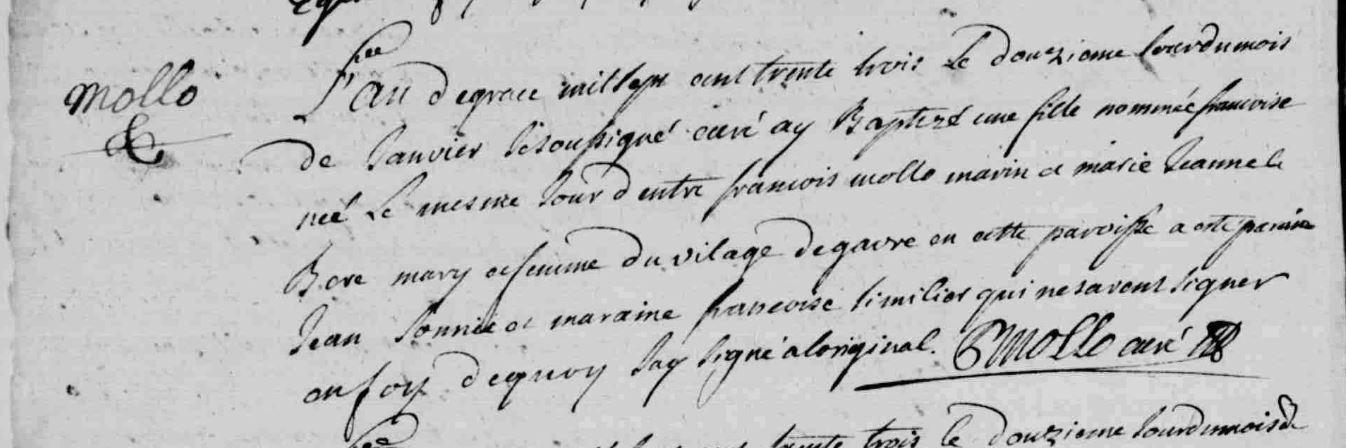 mollo
L'an de grace mil sept cent trente trois Le douzieme Jour du mois
de Janvier Je Soussigné curé ay Baptizé une fille nommée francoise
neé Le mesme Jour d'entre francois mollo marin et marie Jeanne le
mary et femme du vilage de gavre en cette paroisse a esté paraine
Jean et maraine francoise qui ne savent signer
en foy de quoy Jay signé a loriginal. mollo curé
trente trois le douzieme Jour du mois de